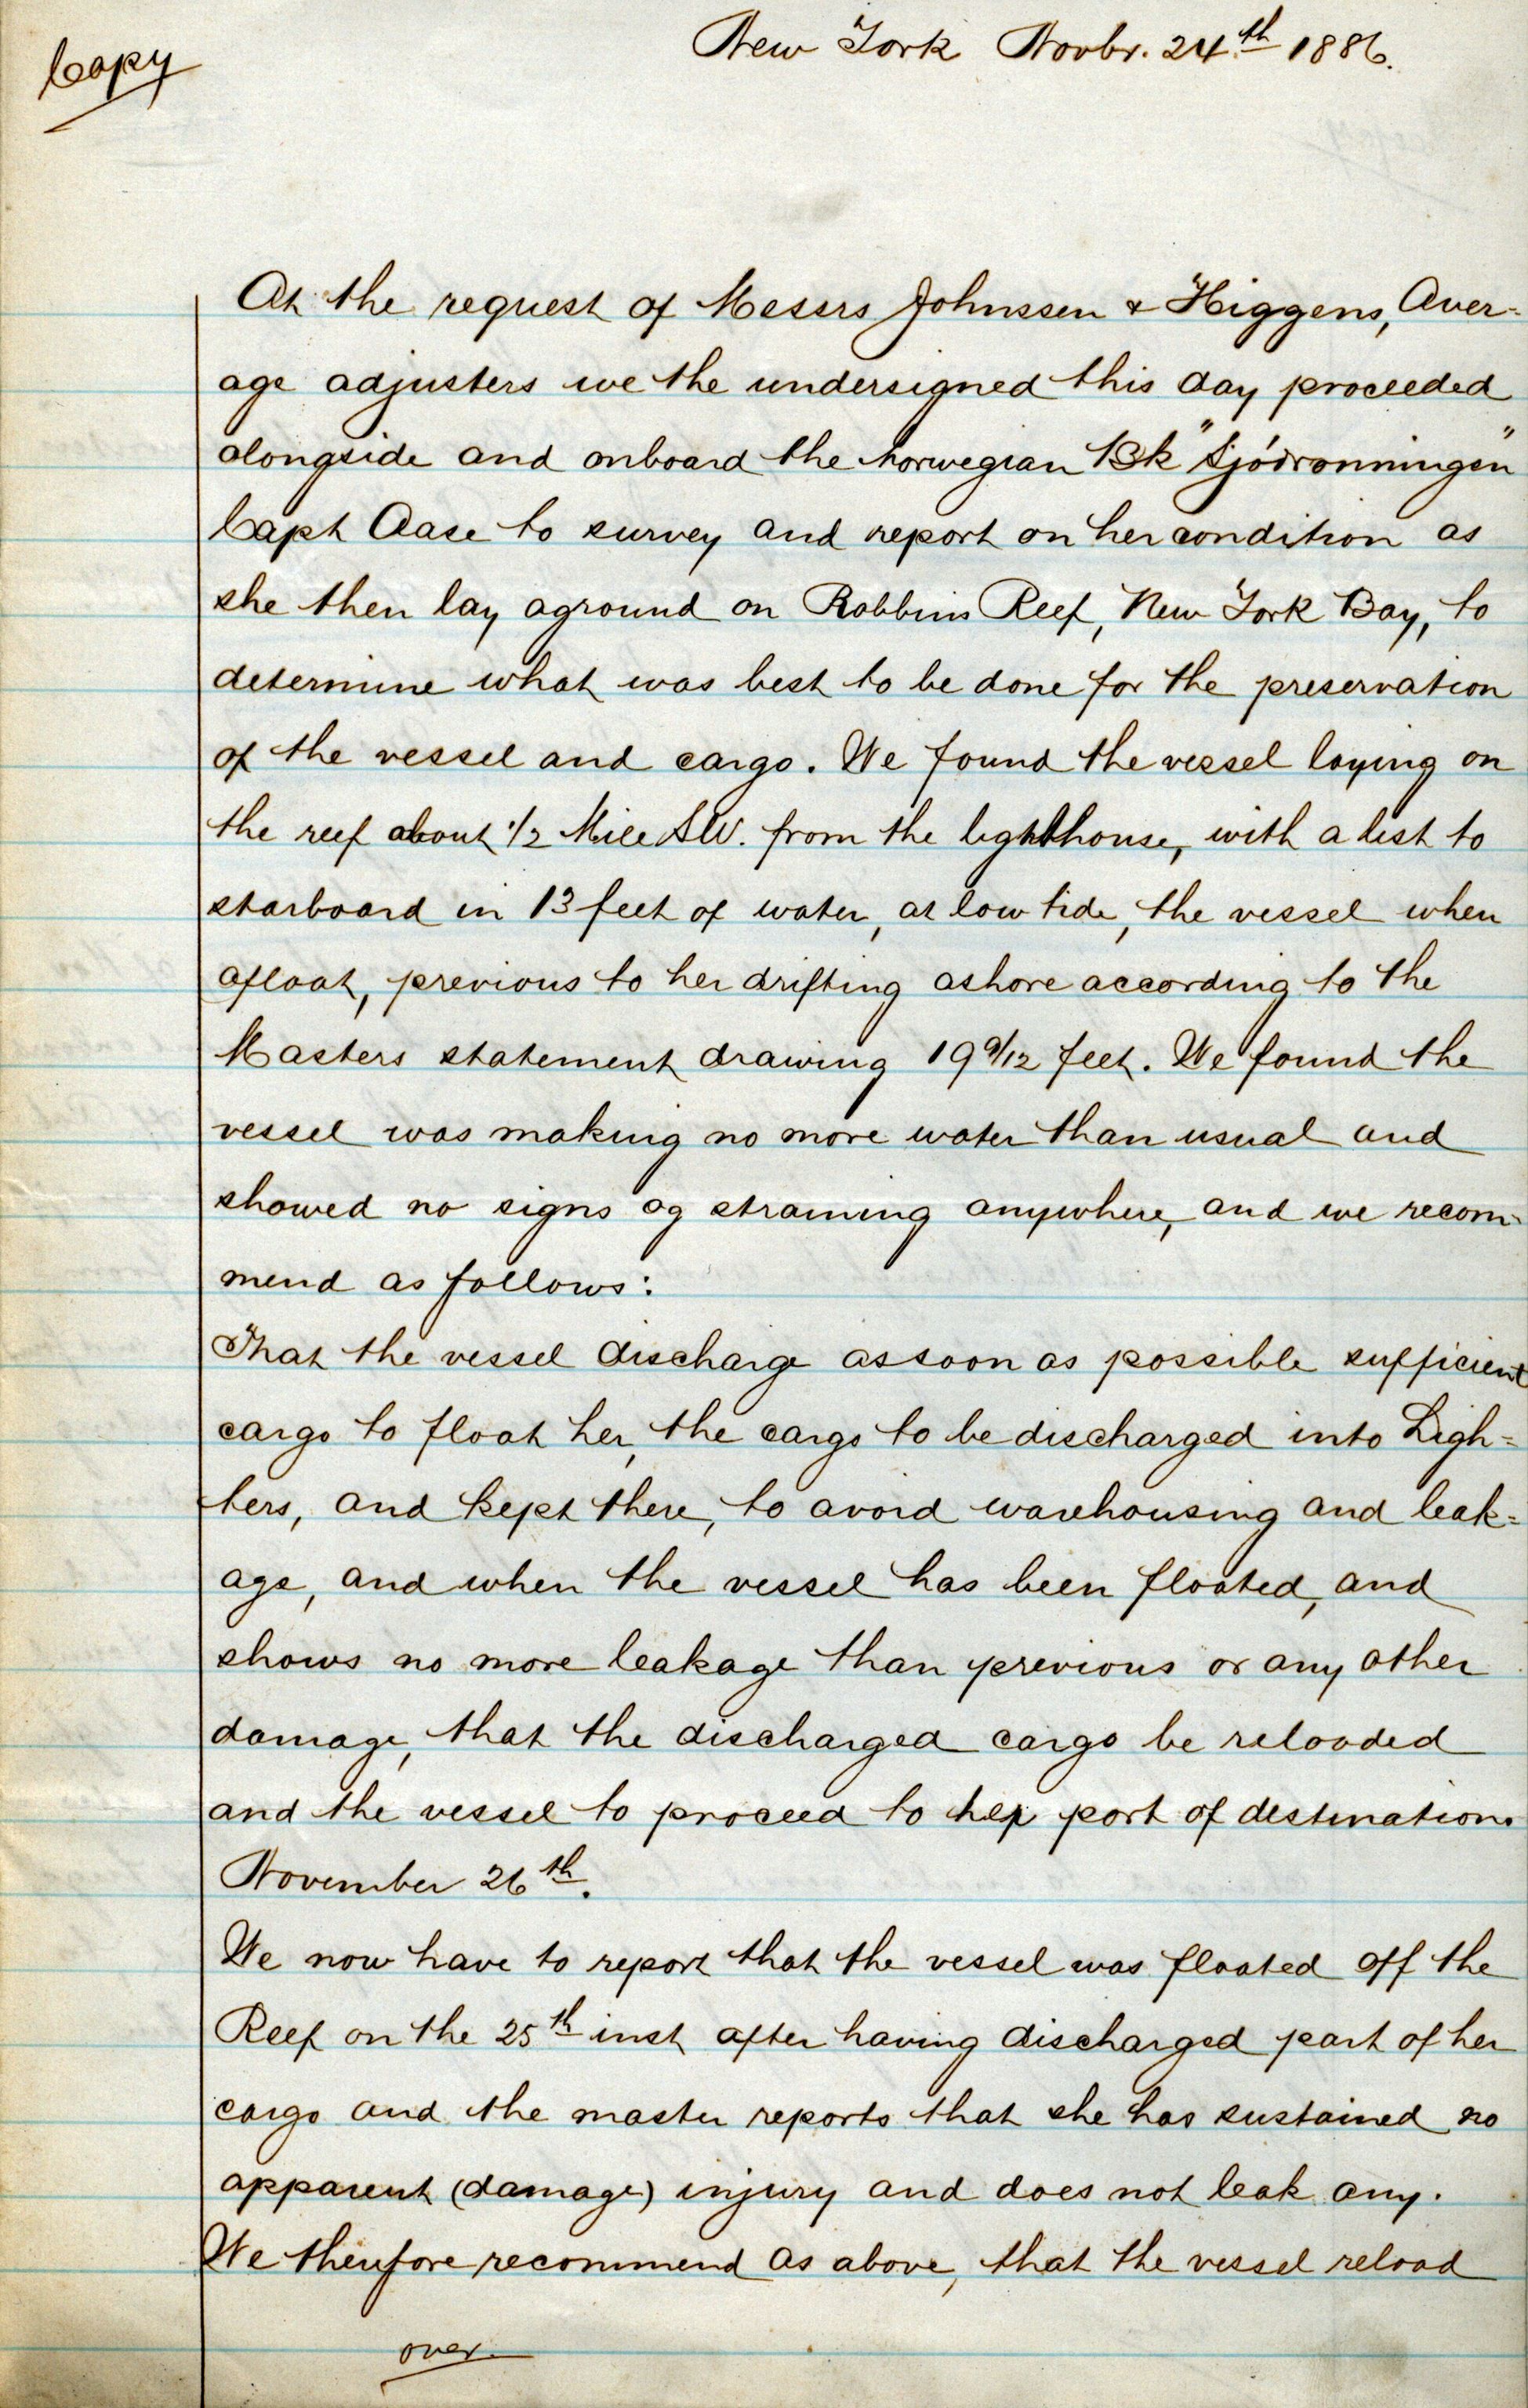 Copy
New York Novbr. 24th 1886.
At the request of Messrs Johnssen & Higgens, Aver-
age adjusters we the undersigned this day proceeded
alongside and onboard the Norwegian Bk "Sjódronningen"
Capt Aase to survey and report on her condition as
she then lay aground on Robbins Reef, New York Bay, to
determine what was best to be done for the preservation
of the vessel and cargo. We found the vessel laying on
the reef about 1/2 Mile SW. from the lighthouse, with a list to
starboard in 13 feet of water, at low tide, the vessel when
afloat, previous to her drifting ashore according to the
Masters statement drawing 19 9/12 feet. We found the
vessel was making no more water than usual and
showed no signs og straining anywhere, and we recom-
mend as follows:
That the vessel discharge as soon as possible sufficient
cargo to float her, the cargo to be discharged into Ligh=
ters, and kept there, to avoid warehousing and leak=
age, and when the vessel has been floated, and
shows no more leakage than previous or any other
damage, that the discharged cargo be reloaded
and the vessel to proceed to her port of destination.
November 26th.
We now have to report that the vessel was floated off the
Reef on the 25th inst after having discharged part of her
cargo and the master reports that she has sustained no
apparent (damage) injury and does not leak any.
We therefore recommend as above, that the vessel reload
over.